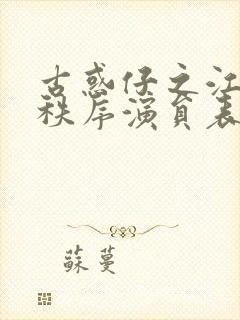 古惑仔之江
秩序演员表
蘇蔓